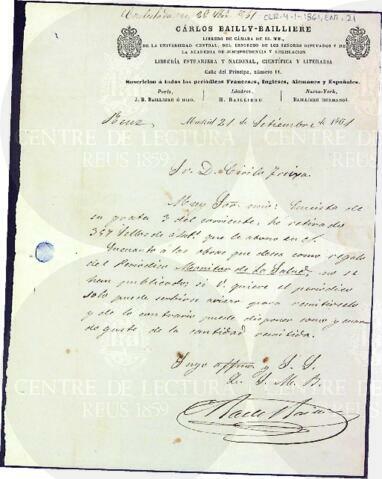 CLR-4-1-1861, ENT. 21
Contestada en 30
CÁRLOS BAILLY-BAILLIERE
LIBRERO DE CÁMARA DE SS. MM.,
DE LA UNIVERSIDAD CENTRAL, DEL CONGRESO DE LOS SEÑORES DIPUTADOS Y DE
LA ACADEMIA DE JURISPRUDENCIA Y LEGISLACION
LIBRERÍA ESTRANJERA Y NACIONAL, CIENTÍFICA Y LITERARIA
Calle del Príncipe, número 11.
Suscricion á todos los periódicos Franceses, Ingleses, Alemanes y Españoles.
París, Lóndres, Nueva-York,
J. B. BAILLIERE É HIJO. H. BAILLIERE BAILLIERE HERMANOS.
Reus, Madrid 21 de Setiembre de 1861
Sr. D.
Muy Sor. mio: 
su grata 3 del corriente, he retirado
357 Sellos de 4 que le abono en c/.
En cuanto a las obras que desea como regalo
del Periódico Monitor de la Salud, no se
han publicado; si V. quiere el periódico
solo puede servirse aviso para remitirselo
y de lo contrario puede disponer como
de guste de la cantidad remitida.
Suyo affmo y S. S.
Q. S. M. B.
CENTRE DE LECTURA
REUS 1859